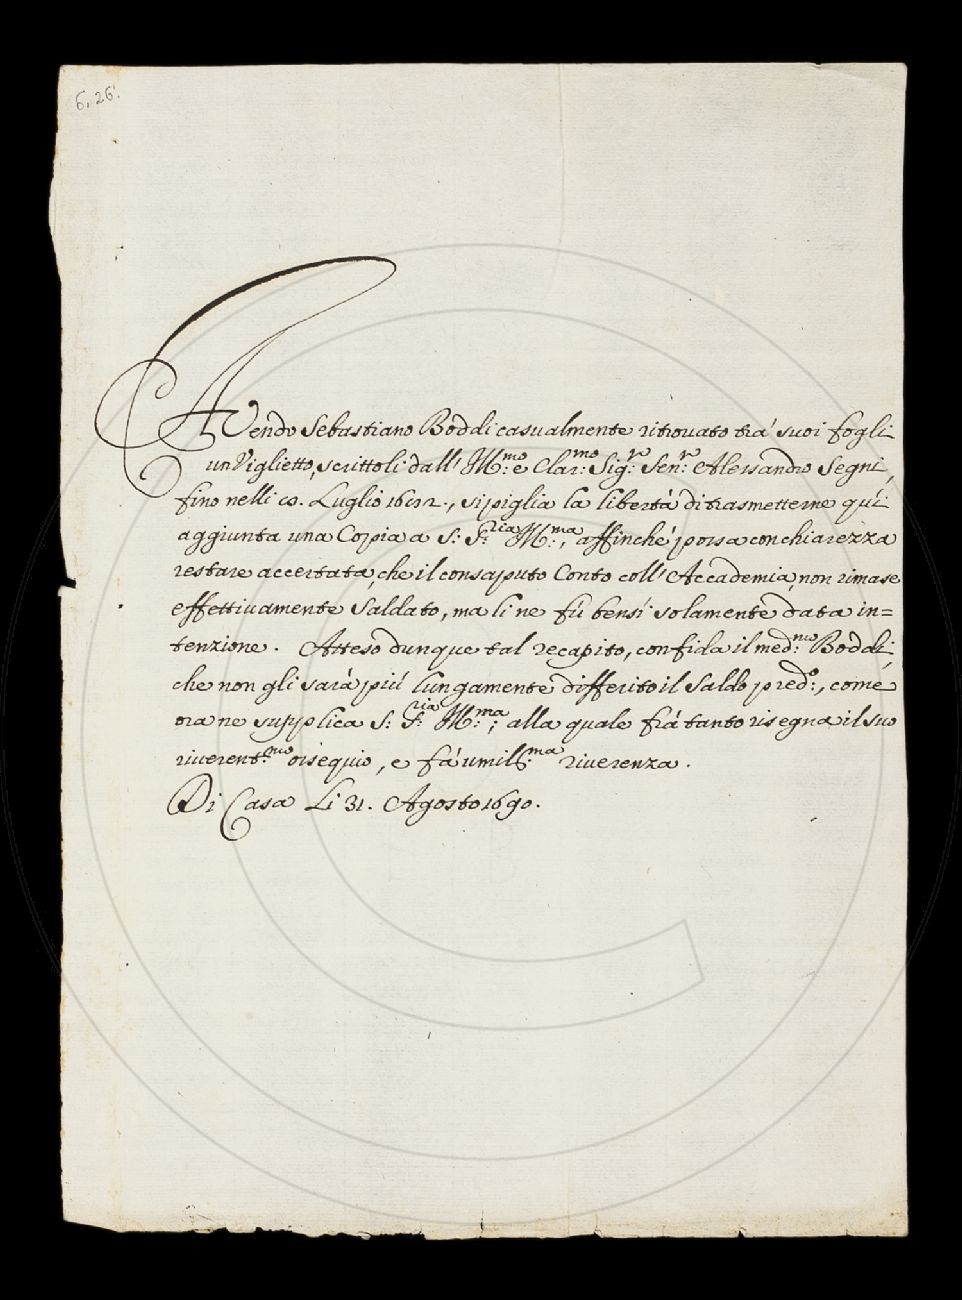 6. 26.
Avendo Sebastiano Boddi casualmente ritrovato trà suoi fogli
un Viglietto, scrittoli dall' Ill:mo e Clar:mo Sig:re Sen:re Alessandro Segni,
fino nelli Luglio, si piglia la libertà di trasmetterne quì
aggiunta una Copia a S: S:ria Ill:ma, affinchè possa con chiarezza
restare accertata, che il consaputo Conto coll' Accademia, non rimase
effettivamente saldato, ma li ne fù bensì solamente data in=
tenzione. Atteso dunque tal recapito, confida il med:mo Boddi,
che non gli sarà più lungamente differito il saldo pred:o, come
ora ne supplica S: S:ria Ill:ma; alla quale frà tanto risegna il suo
riverent:mo ossequio, e fà umiliss:ma riverenza.
Di Casa Li 31. Agosto 1690.